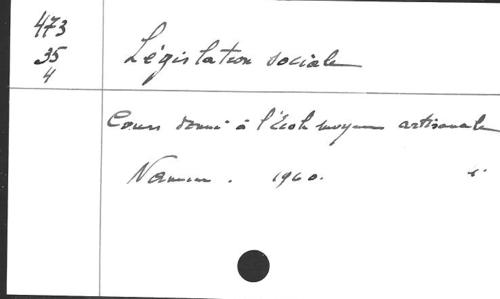 473
35
4
Législation sociale
Cours donné à l'Ecole moyenne artisanale
Namur . 1960.